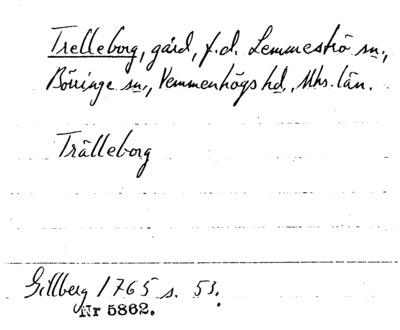 Trelleborg, gård, f.d. Lemmeströ sn.,
Börringe sn., Vemmenhögs hd., Mhs. län.
Trälleborg
Gillberg 1765 s. 53.
Nr 5862.